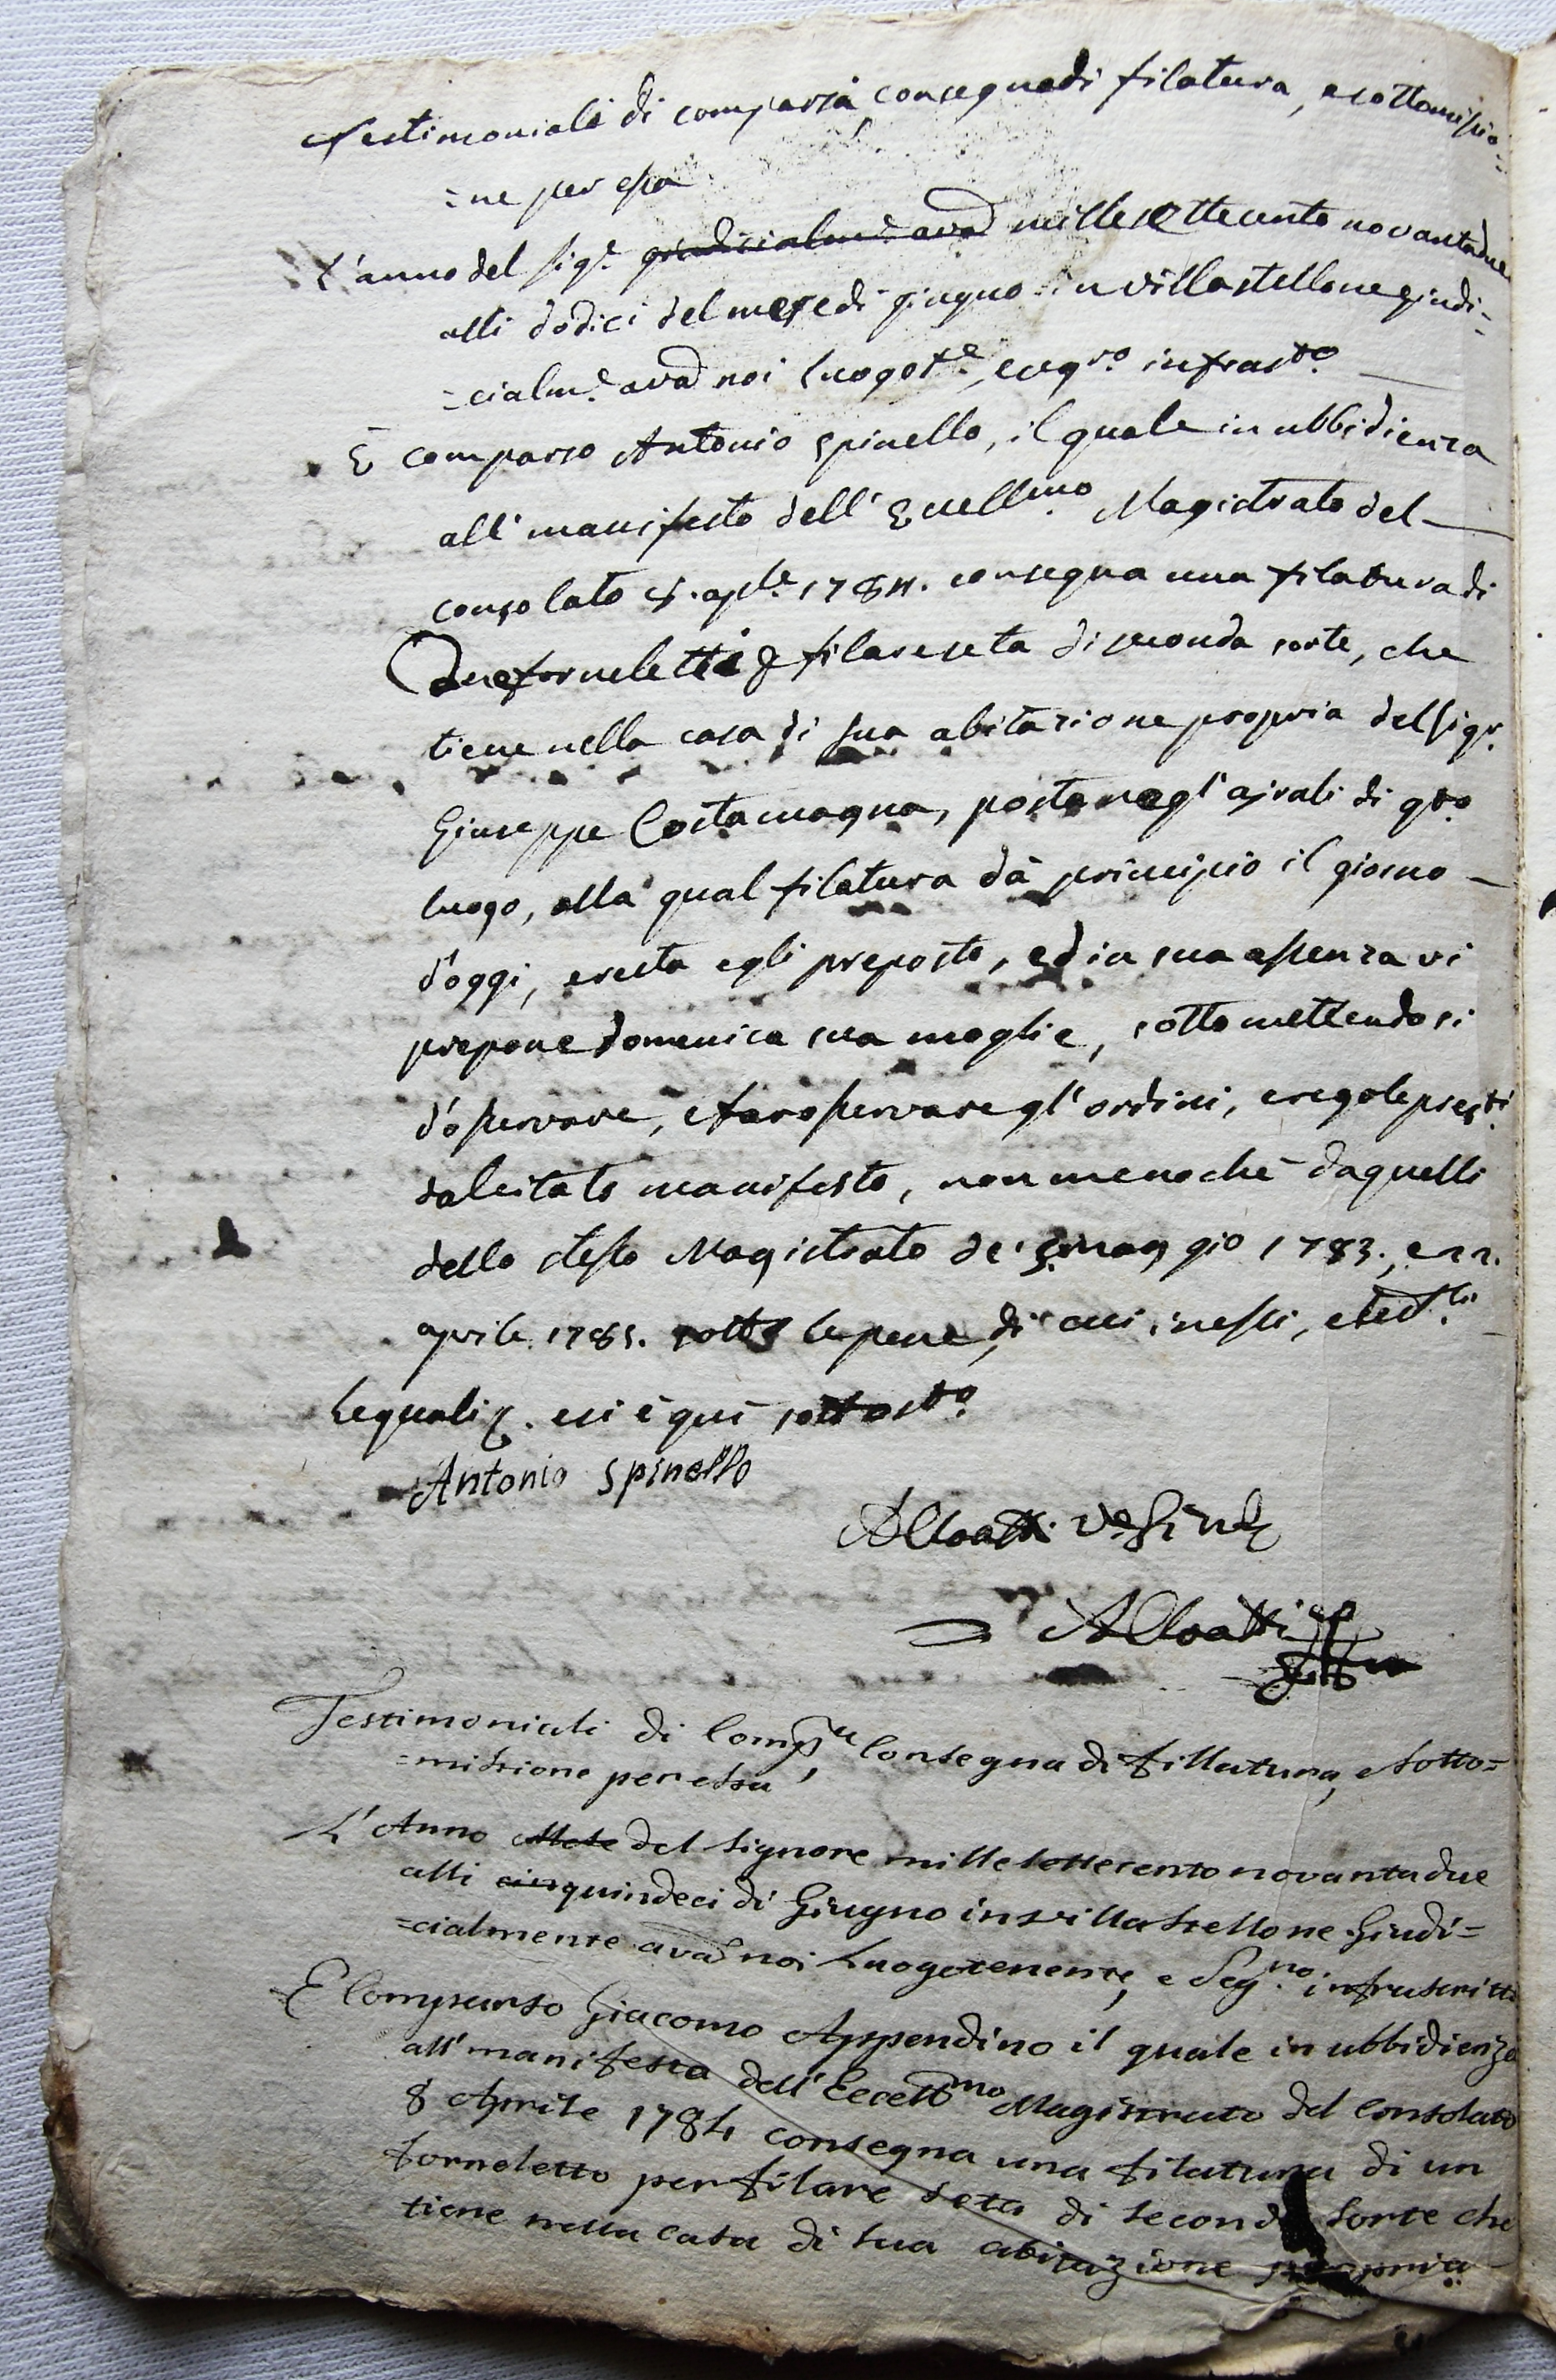 Testimoniali di comparsa, consegna di filatura, e sottomissio=
=ne per essa
L'anno del sig.e giudicialm.e avd mille settecento novantadue
alli dodici del mese di giugno in villastellone giudi=
=cialm.e avd noi luogot.e, e seg.ro infrast.o
È comparso Antonio Spinello, il quale in ubbidienza
all' manifesto dell' Eccell.mo Magistrato del
consolato 8. ap.le 1784. consegna una filatura di
due forneletti p filare seta di seconda sorte, che
tiene nella casa di sua abitazione propria del sig.r
Giuseppe Costamagna, posta negl' ajrali di q.to
luogo, alla qual filatura dà principio il giorno
d'oggi, e resta egli preposto, ed in sua assenza vi
prepone domenica sua moglie, sottomettendosi
d'osservare, e far osservare gl' ordini, e regole prest.i
dal citato manifesto, non meno che da quelli
dello stesso Magistrato de' 5. maggio 1783., e 12.
aprile 1785. sotto le pene, di cui in essi,
Le quali. e si è qui sottost.o
Antonio Spinello
Alloatti
Alloatti
Testimoniali di Comp.sa Consegna di fillatura, e sotto=
=missione per essa
L'Anno Mese del Signore mille settecento novanta due
alli cin quindeci di Giugno in villastellone Giudi=
=cialmente avd noi Luogotenente, e Seg.ro infrascritti
È Comparso Giacomo Appendino il quale in ubbidienza
all' manifesto dell' Eccell.mo Magistrato del Consolato
8 Aprile 1784 consegna una filatura di un
forneletto per filare seta di seconda sorte che
tiene nella Casa di sua abitazione propria